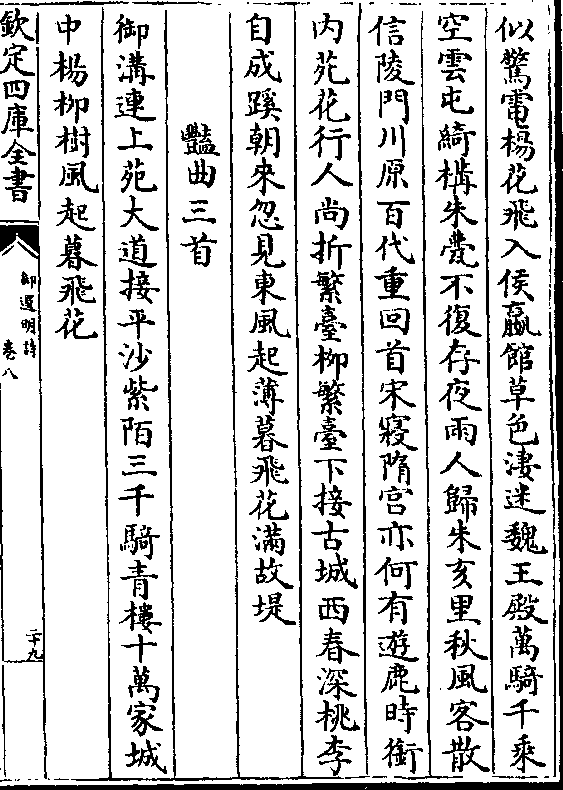 似驚電楊花飛入侯嬴館草色淒迷魏王殿萬騎千乘
空雲屯綺構朱甍不復存夜雨人歸朱亥里秋風客散
信陵門川原百代重回首宋寢隋宮亦何有遊鹿時銜
内苑花行人尚折繁臺柳繁臺下接古城西春深桃李
自成蹊朝來忽見東風起薄暮飛花滿故堤
豔曲三首
御溝連上苑大道接平沙紫陌三千騎青樓十萬家城
中楊柳樹風起暮飛花
欽定四庫全書
御選明詩
卷八
二十九